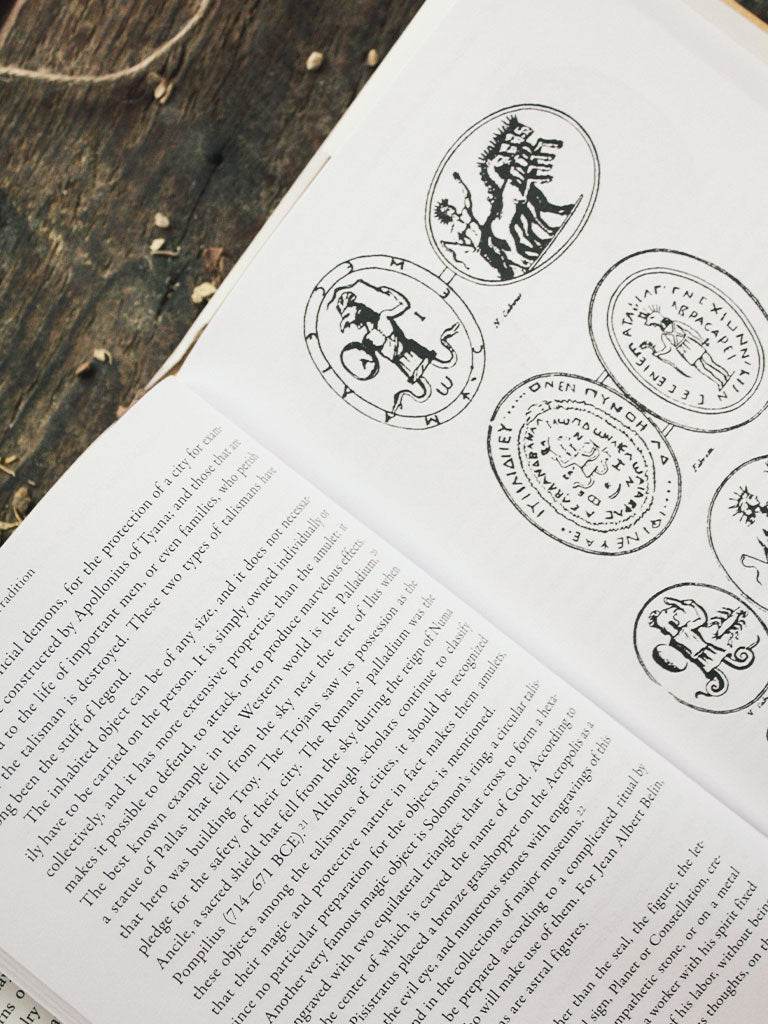 radition
icial demons, for the protection of a city for exam-
constructed by Apollonius of Tyana; and those that are
d to the life of important men, or even families, who perish
the talisman is destroyed. These two types of talismans have
ng been the stuff of legend.
The inhabited object can be of any size, and it does not necessar-
ily have to be carried on the person. It is simply owned individually or
collectively, and it has more extensive properties than the amulet: it
makes it possible to defend, to attack, or to produce marvelous effects.
The best known example in the Western world is the Palladium, 20
a statue of Pallas that fell from the sky near the tent of Ilus when
that hero was building Troy. The Trojans saw its possession as the
pledge for the safety of their city. The Romans' palladium was the
Ancile, a sacred shield that fell from the sky during the reign of Numa
Pompilius (714–671 BCE). 21 Although scholars continue to classify
these objects among the talismans of cities, it should be recognized
that their magic and protective nature in fact makes them amulets,
since no particular preparation for the objects is mentioned.
Another very famous magic object is Solomon's ring, a circular talis-
ngraved with two equilateral triangles that cross to form a hexa-
he center of which is carved the name of God. According to
Pisistratus placed a bronze grasshopper on the Acropolis as a
the evil eye, and numerous stones with engravings of this
nd in the collections of major museums. 22
be prepared according to a complicated ritual by
o will make use of them. For Jean Albert Belin,
ns are astral figures.
her than the seal, the figure, the let-
sign, Planet or Constellation, cre-
mpathetic stone, or on a metal
a worker with his spirit fixed
of his labor, without being
s thoughts, on th